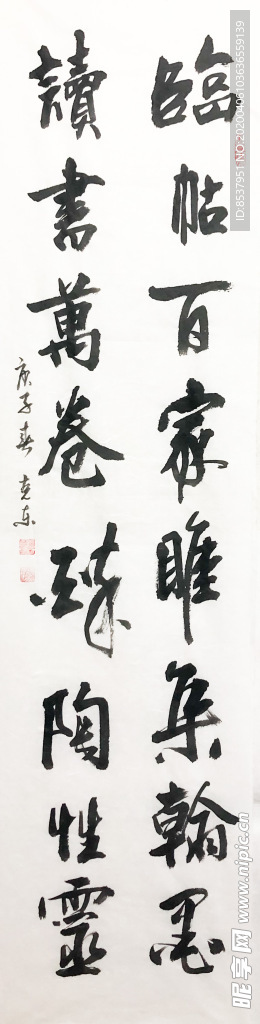 臨帖百家睢集翰墨
讀書萬卷陶性靈
庚子春 克东
ID:8537951 NO:20200406103636559139
昵享网 www.nipic.cn